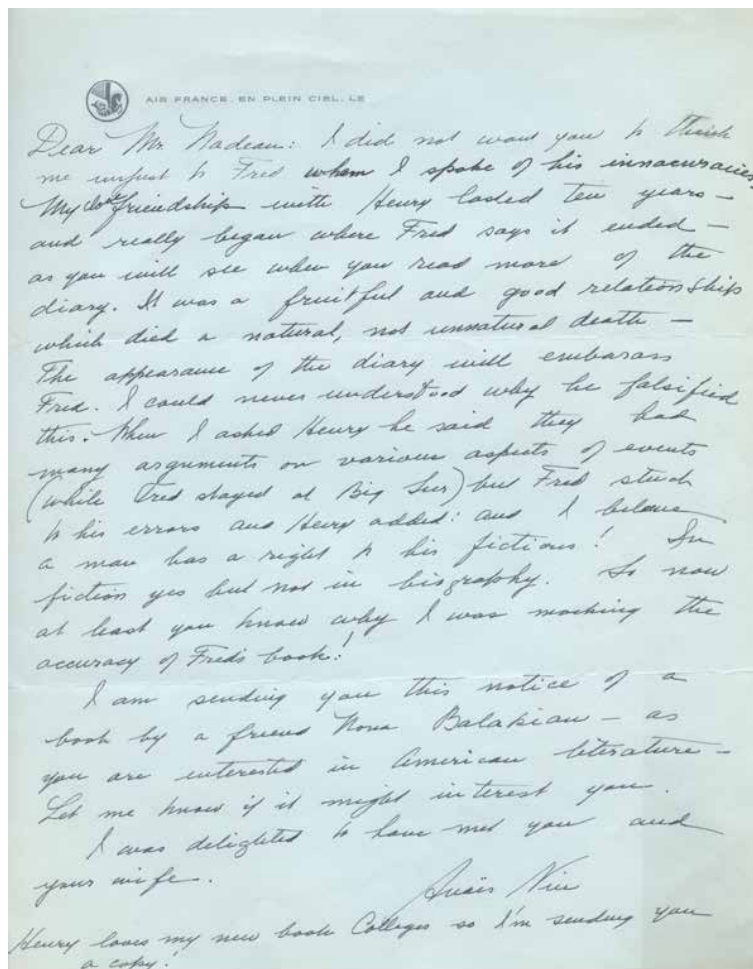 AIR FRANCE. EN PLEIN CIEL, LE
Dear Mr. Nadeau: I did not want you to think
me unjust to Fred when I spoke of his innacuracies
My love friendship with Henry lasted ten years —
and really began where Fred says it ended —
as you will see when you read more of the
diary. It was a fruitful and good relationship
which died a natural, not unnatural death —
The appearance of the diary will embarass
Fred. I could never understood why he falsified
this. When I asked Henry he said they had
many arguments on various aspects of events
(while Fred stayed at Big Sur) but Fred stuck
to his errors and Henry added: and I believe
a man has a right to his fictions! In
fiction yes but not in biography. So now
at least you know why I was mocking the
accuracy of Fred's book!
I am sending you this notice of a
book by a friend Nona Balakian — as
you are interested in American literature —
Let me know if it might interest you.
I was delighted to have met you and
your wife.
Anaïs Nin
Henry loves my new book Collages so I'm sending you
a copy!